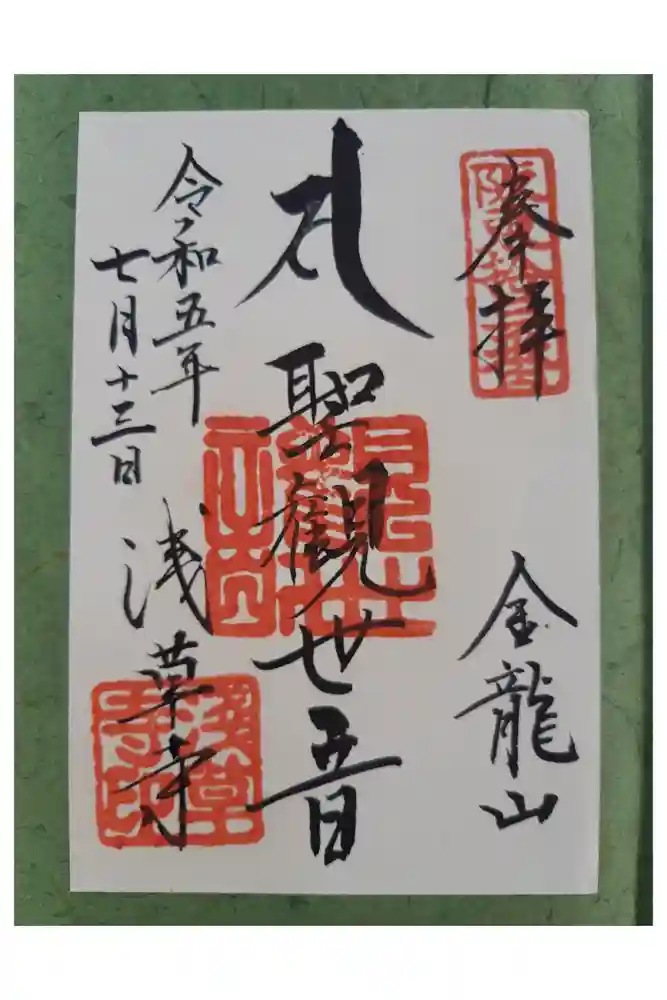 奉拝
金龍山
聖觀世音
浅草寺
令和五年
七月十三日